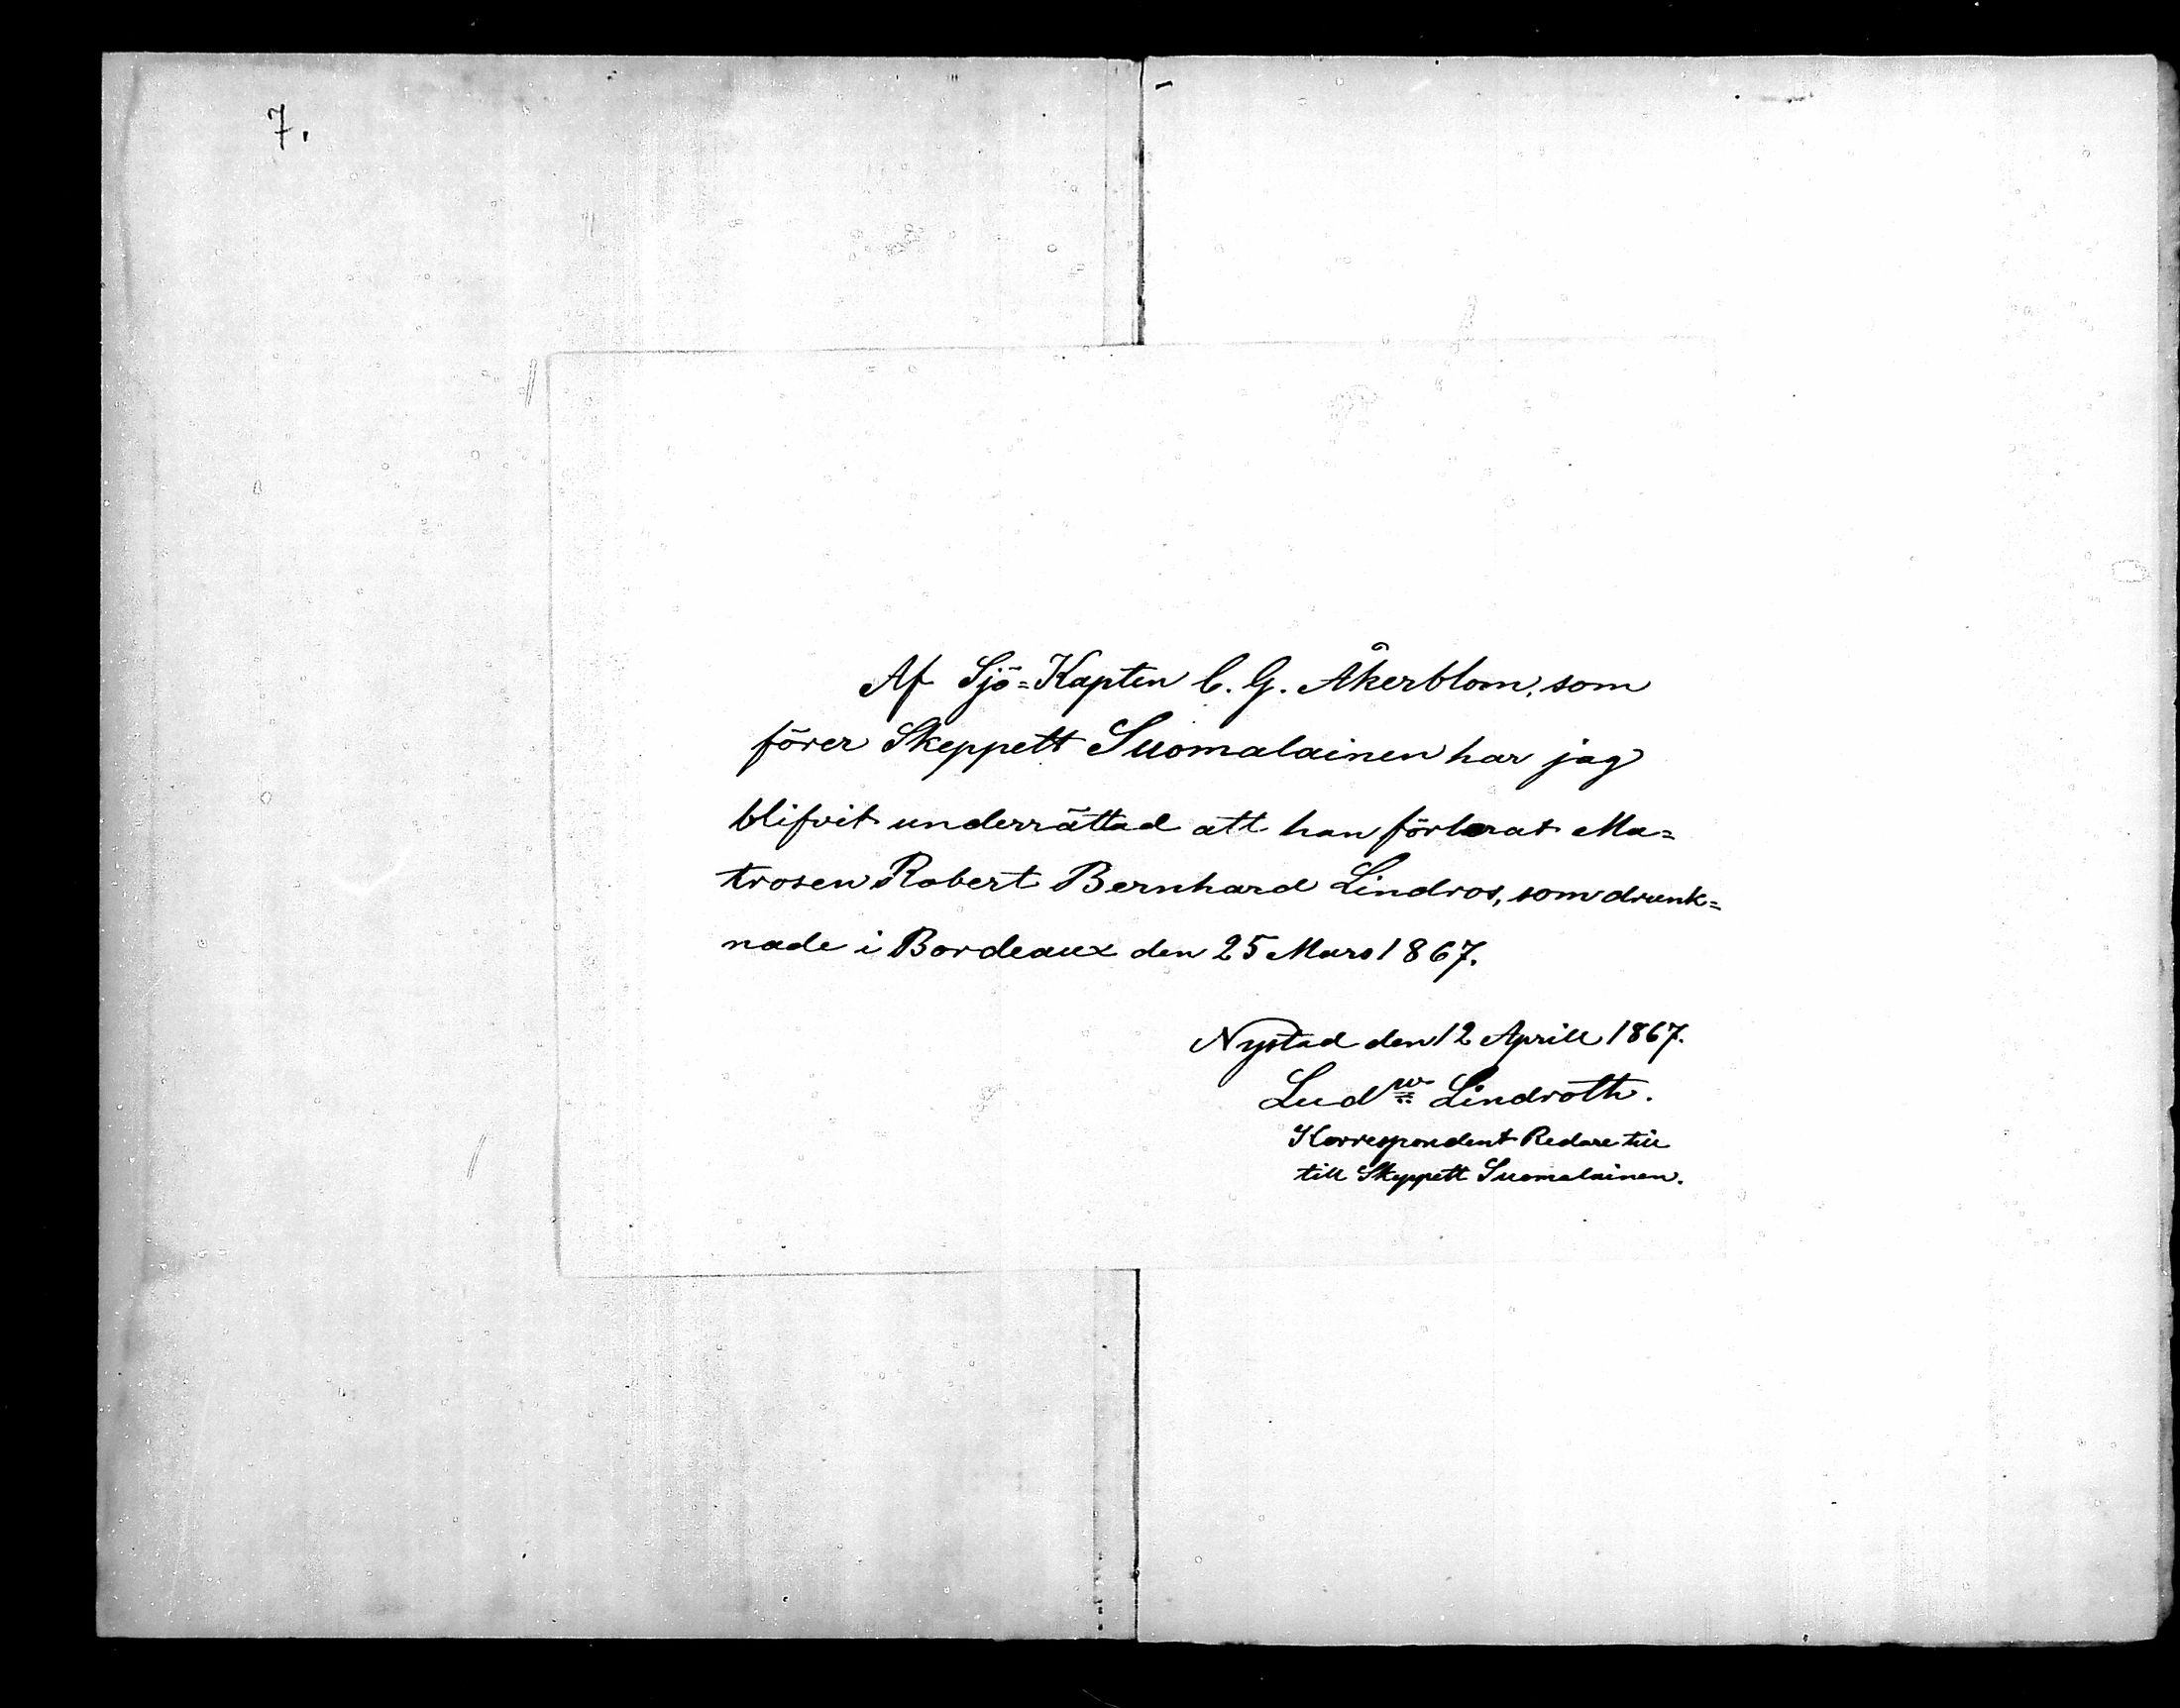 7.
Af Sjö=Kapten C. G. Åkerblom, som
förer Skeppett Suomalainen har jag
blifvit underrättad att han förlorat Ma=
trosen Robert Bernhard Lindros, som drunk=
nade i Bordeaux den 25 Mars 1867.
Nystad den 12 Aprill 1867.
Ludw Lindroth.
Korrespondent Redare till
till Skeppett Suomalainen.